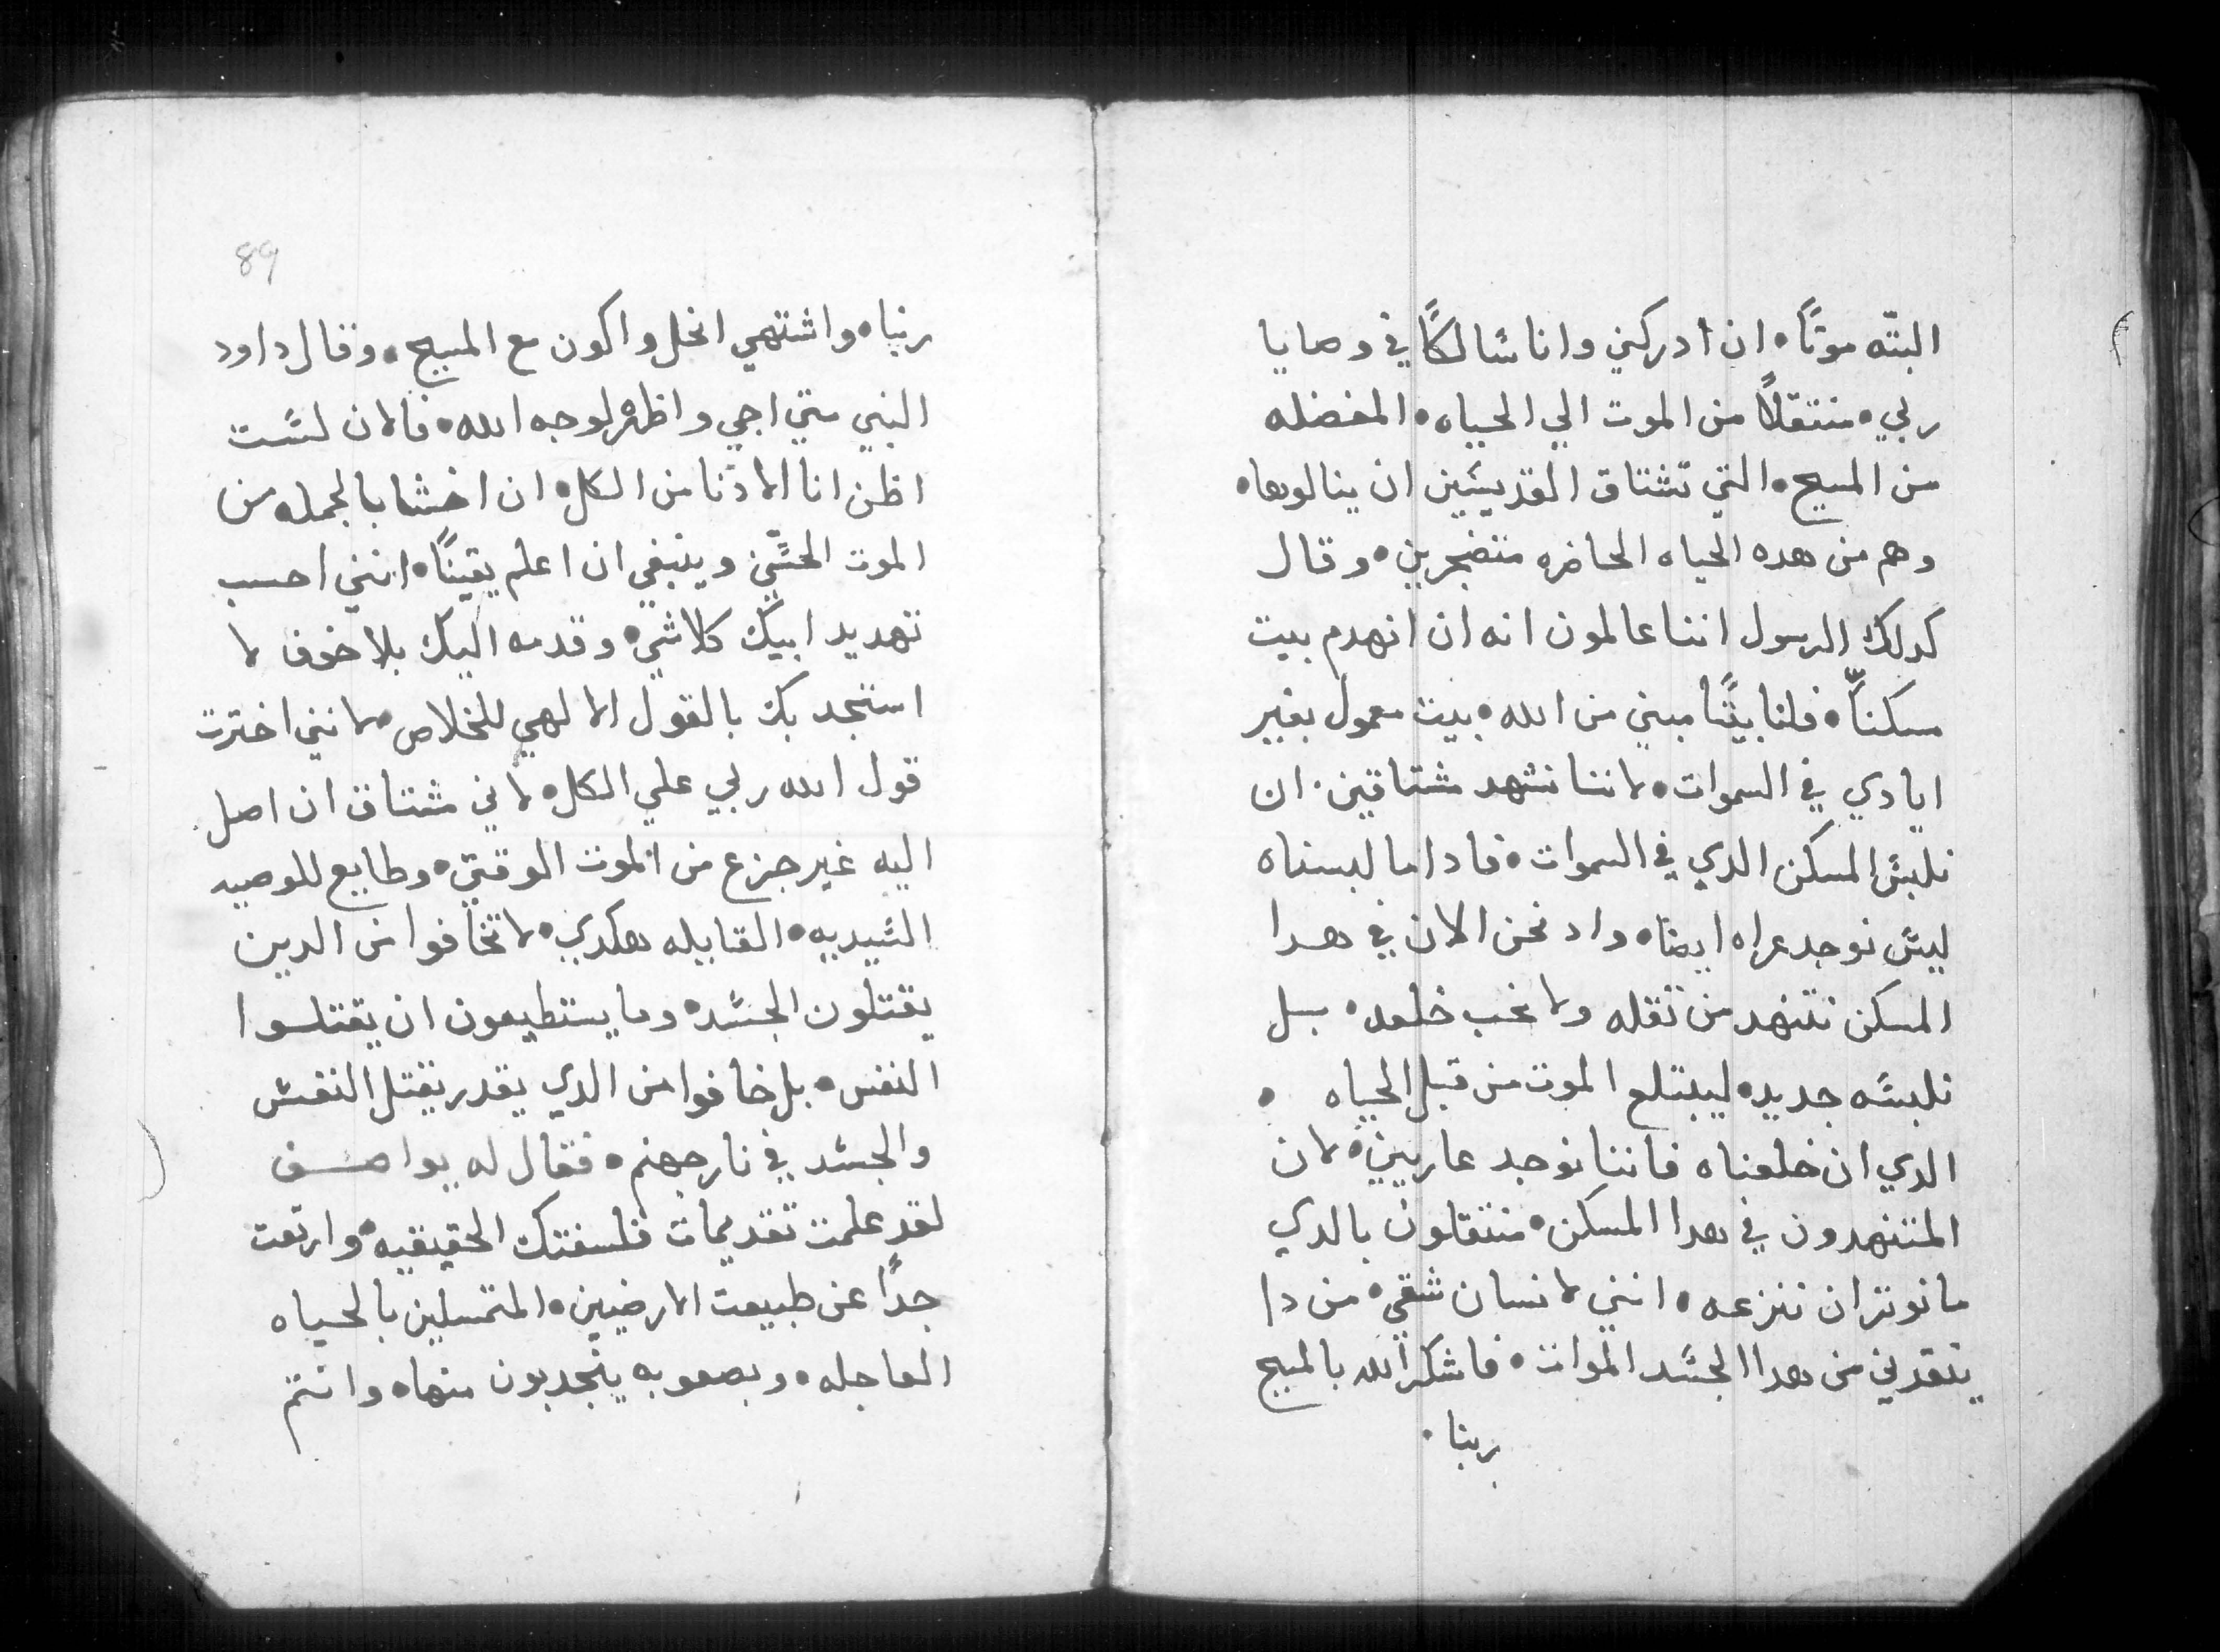 البتّه موتًا. ان ادركني وانا سالكًا في وصايا
ربي. منتقلاً من الموت الي الحياه. المفضله
من المسيح. التي تشتاق القديسين ان ينالوها.
وهم من هده الحياه الحاضره متضجرين. وقال
كدلك الرسول اننا عالمون انه ان انهدم بيت
مسكننّا. فلنا بيتًا مبني من الله. بيت معمول بغير
ايادي في السموات. لاننا نتنهد مشتاقين. ان
نلبس المسكن الدي في السموات. فادا ما لبسناه
ليس نوجد عراه ايضا. واد نحن الان في هدا
المسكن نتنهد من تقله ولا نحب خلعه. بل
نلبسه جديد. ليبتلع الموت من قبل الحياه.
الدي ان خلعناه فاننا نوجد عاريين. لان
المتنهدون في هدا المسكن. منتقلون بالدي
ما نوتر ان ننزعه. انني لانسان شقي. من دا
ينقدني من هدا الجسد الموات. فاشكر الله بالمسيح
ربنا.
89
ربنا. واشتهي انحل واكون مع المسيح. وقال داود
النبي متي اجي واظهر لوجه الله. فالان لست
اظن انا الادنا من الكل. ان اخشا بالجمله من
الموت الحسّي وينبغي ان اعلم يقينًا. انني احسب
تهديد ابيك كلاشي. وقدمه اليك بلا خوف لا
استنجد بك بالقول الالهي للخلاص. لانني اخترت
قول الله ربي علي الكل. لاني مشتاق ان اصل
اليه غير جزع من الموت الوقتي. وطايع للوصيه
السيديه. القايله هكدي. لا تخافوا من الدين
يقتلون الجسد. وما يستطيعون ان يقتلوا
النفس. بل خافوا من الدي يقدر يقتل النفس
والجسد في نار جهنم. فقال له يواصف
لقد علمت تقديمات فلسفتك الحقيقيه. وارتعت
جدًا عن طبيعت الارضيين. المتمسلين بالحياه
العاجله. وبصعوبه ينجدبون منها. وانتم